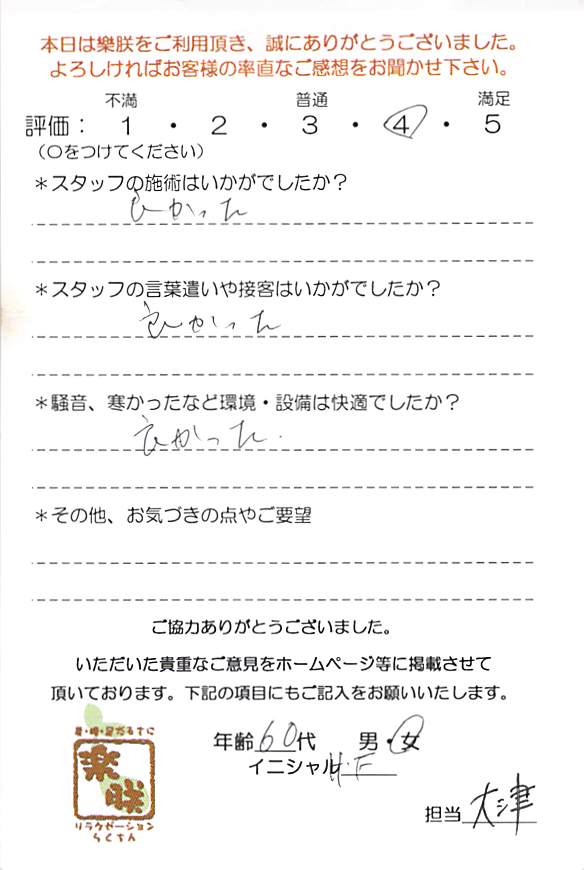 本日は樂朕をご利用頂き、誠にありがとうございました。
よろしければお客様の率直なご感想をお聞かせ下さい。
不満 普通 満足
評価： 1 ・ 2 ・ 3 ・ 4 ・ 5
（〇をつけてください）
＊スタッフの施術はいかがでしたか？
良かった
＊スタッフの言葉遣いや接客はいかがでしたか？
良かった
＊騒音、寒かったなど環境・設備は快適でしたか？
良かった.
＊その他、お気づきの点やご要望
ご協力ありがとうございました。
いただいた貴重なご意見をホームページ等に掲載させて
頂いております。下記の項目にもご記入をお願いいたします。
年齢60代 男・女
イニシャルH.F
担当 大津
楽朕
リラクゼーション
らくちん